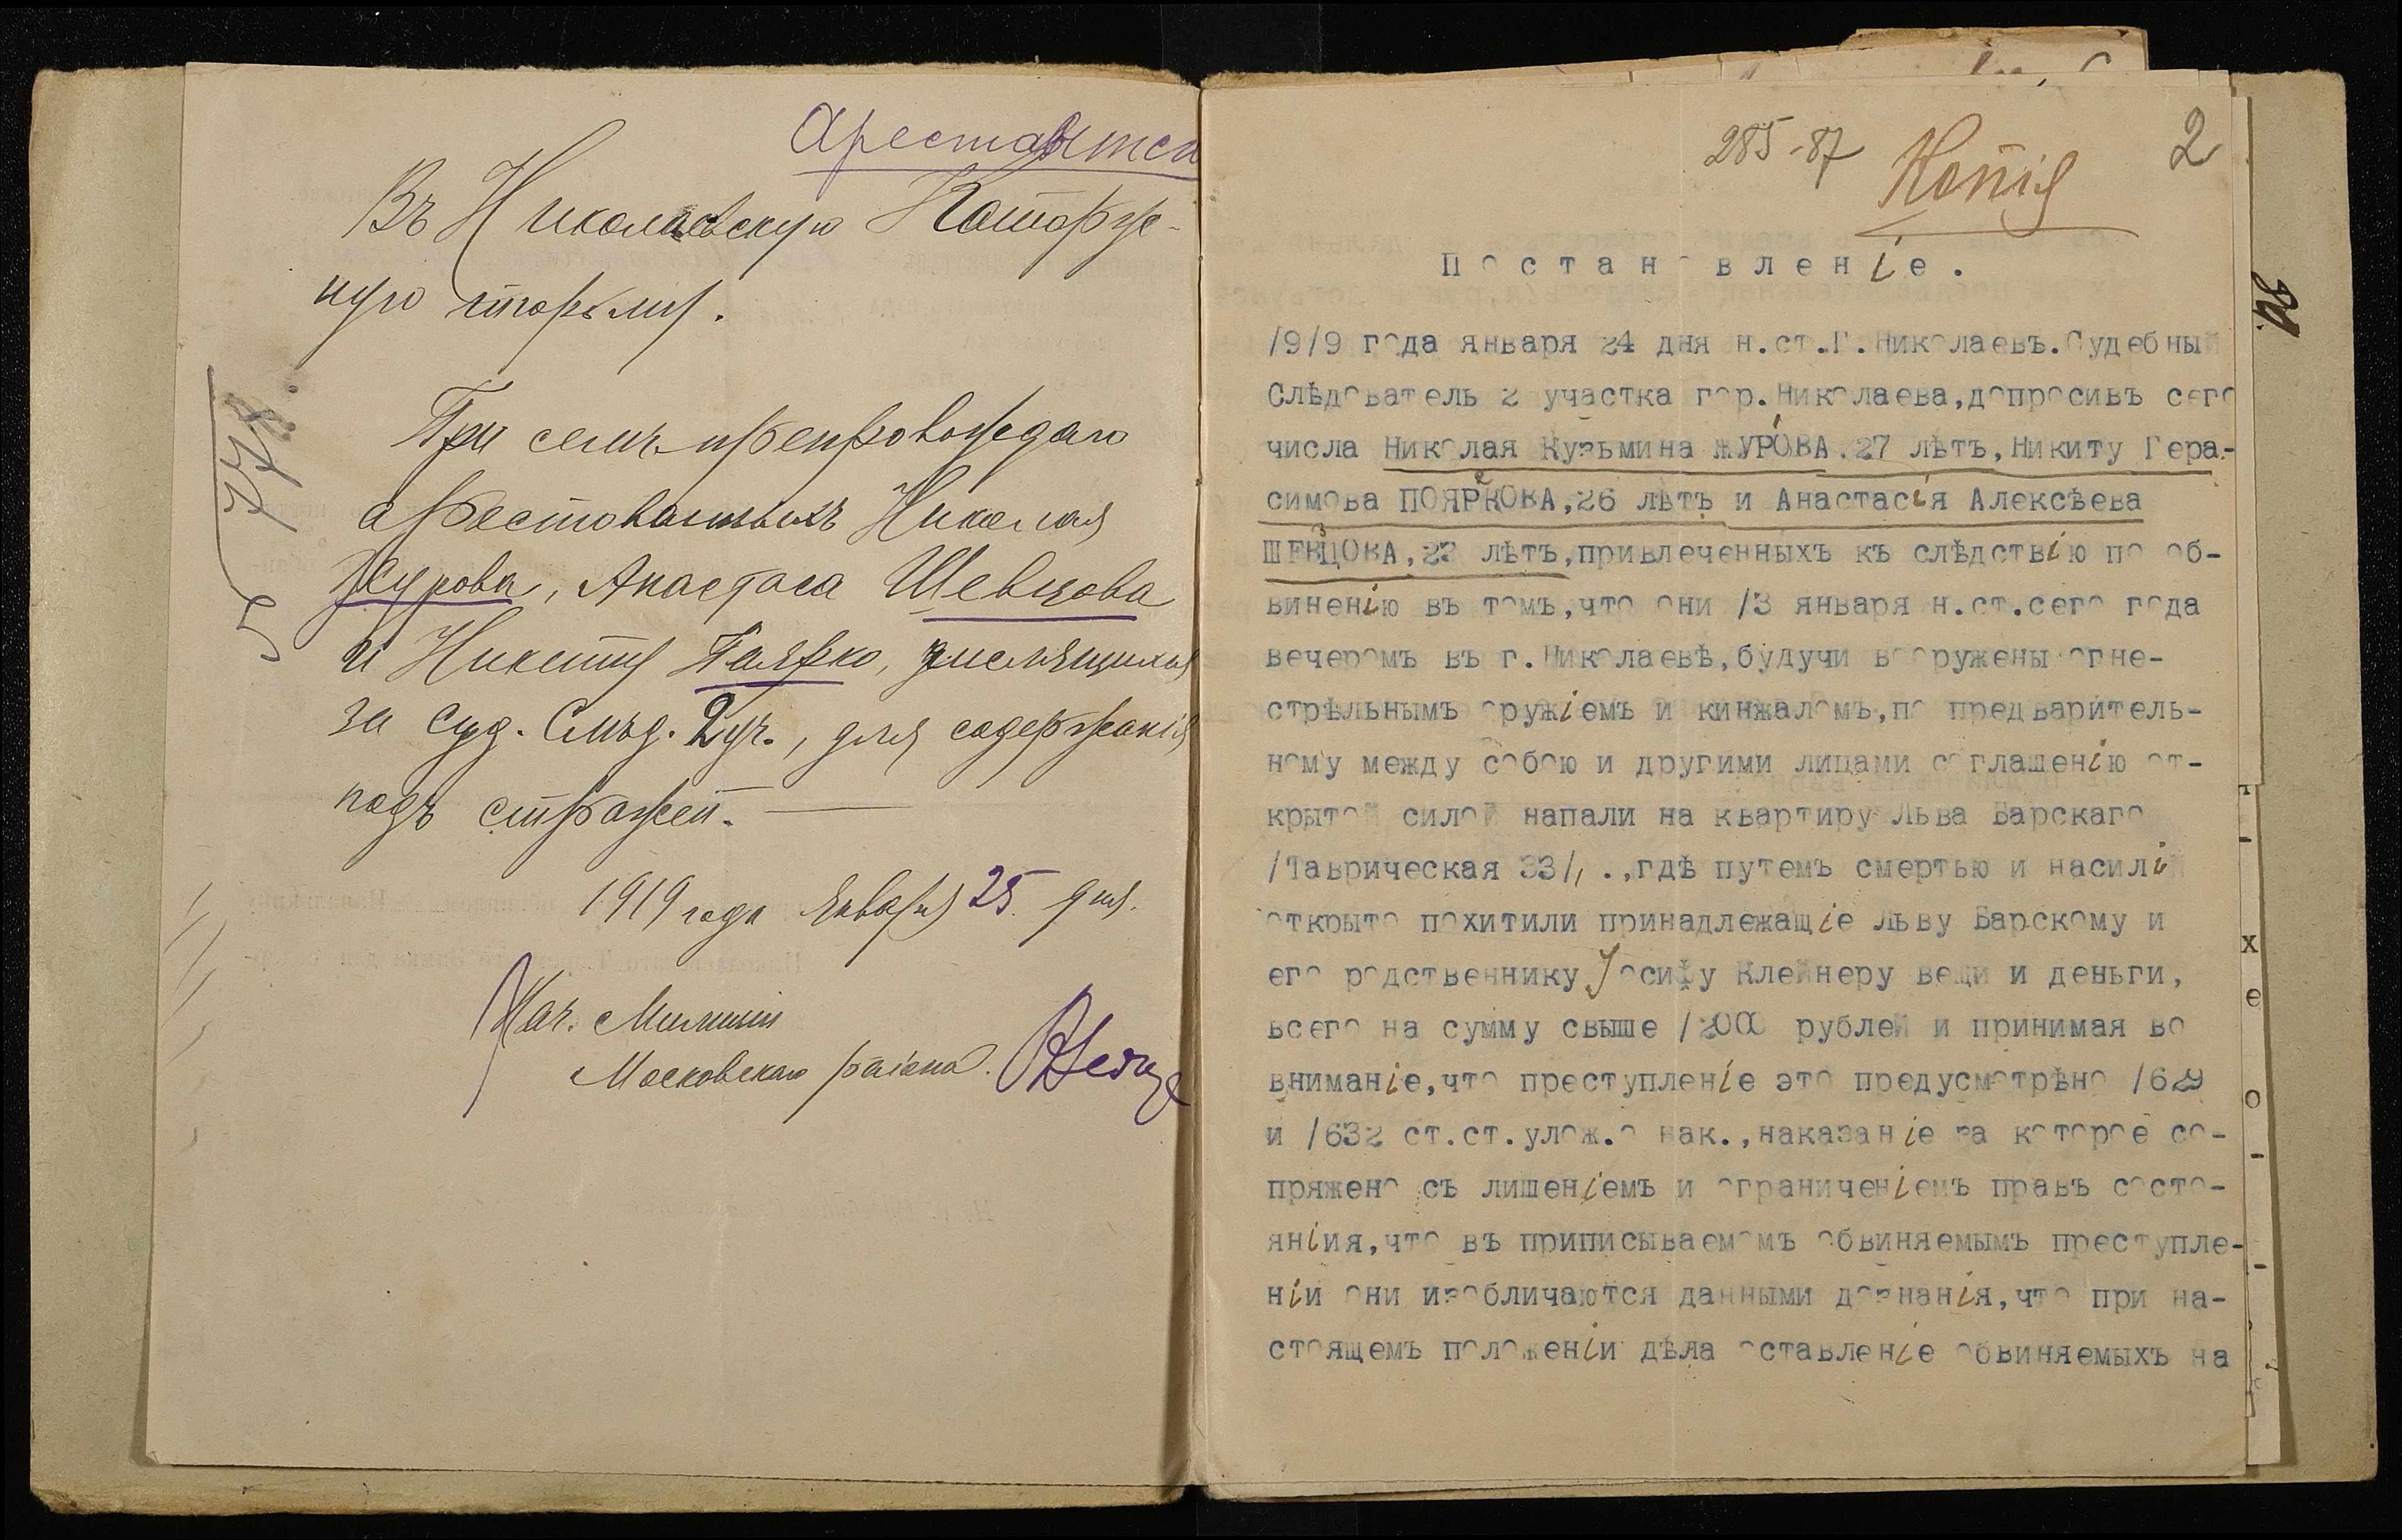 Арестантск
Въ Николаевскую Каторж-
ную тюрьму.
При семъ препровождаю
арестованныхъ Николая
Журова, Анастаса Шевцова
и Никиту Паярко, числящихся
за Суд. Слѣд. 2 уч., для содержанія
подъ стражей.
1919 года Января 25 дня.
Нач. Милиціи
Московскаго раіона.
285-87
2
Копія
Постановленіе.
/9/9 года января 24 дня н.ст.Г.Николаевъ.Судебный
Слѣдователь 2 участка гор.Николаева,допросивъ сего
числа Николая Кузьмина ЖУРОВА.27 лѣтъ,Никиту Гера-
симова ПОЯРКОВА,26 лѣтъ и Анастасія Алексѣева
ШЕВЦОВА,23 лѣтъ,привлеченныхъ къ слѣдствію по об-
виненію въ томъ,что они /3 января н.ст.сего года
вечеромъ въ г.Николаевѣ,будучи вооружены огне-
стрѣльнымъ оружіемъ и кинжаломъ,по предваритель-
ному между собою и другими лицами соглашенію от-
крытой силой напали на квартиру Льва Барскаго
/Таврическая 33/, .,гдѣ путемъ смертью и насилій
открыто похитили принадлежащіе Льву Барскому и
его родственнику Іосифу Клейнеру вещи и деньги,
всего на сумму свыше /2000 рублей и принимая во
вниманіе,что преступленіе это предусмотрѣно /629
и /632 ст.ст.улож.о нак.,наказаніе за которое со-
пряжено съ лишеніемъ и ограниченіемъ правъ состо-
янія,что въ приписываемомъ обвиняемымъ преступле-
ніи они изобличаются данными дознанія,что при на-
стоящемъ положеніи дѣла оставленіе обвиняемыхъ на